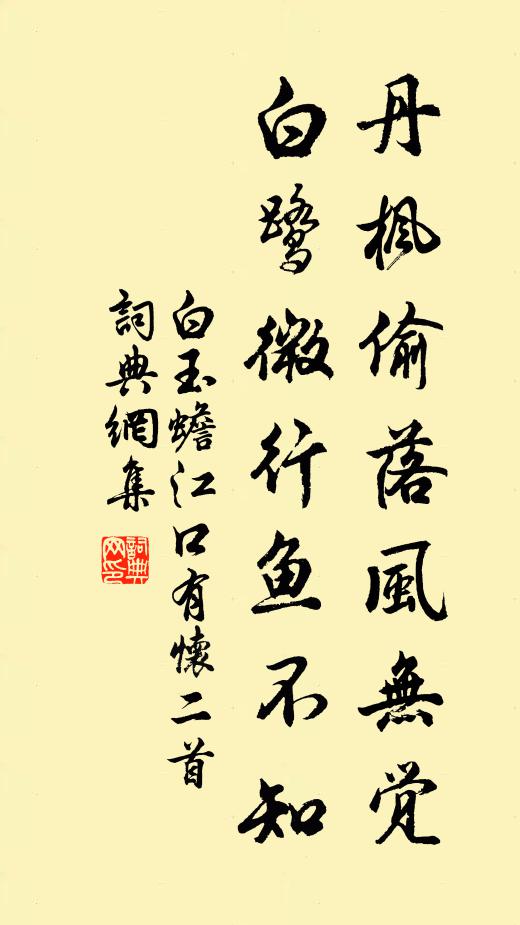 丹楓偷落風無覺
白鹭微行鱼不知
白玉蟾江口有懷二首
詞典網集
詞典网印